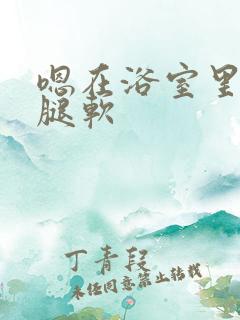 嗯在浴室里
腿软
丁青段
未经同意禁止转载